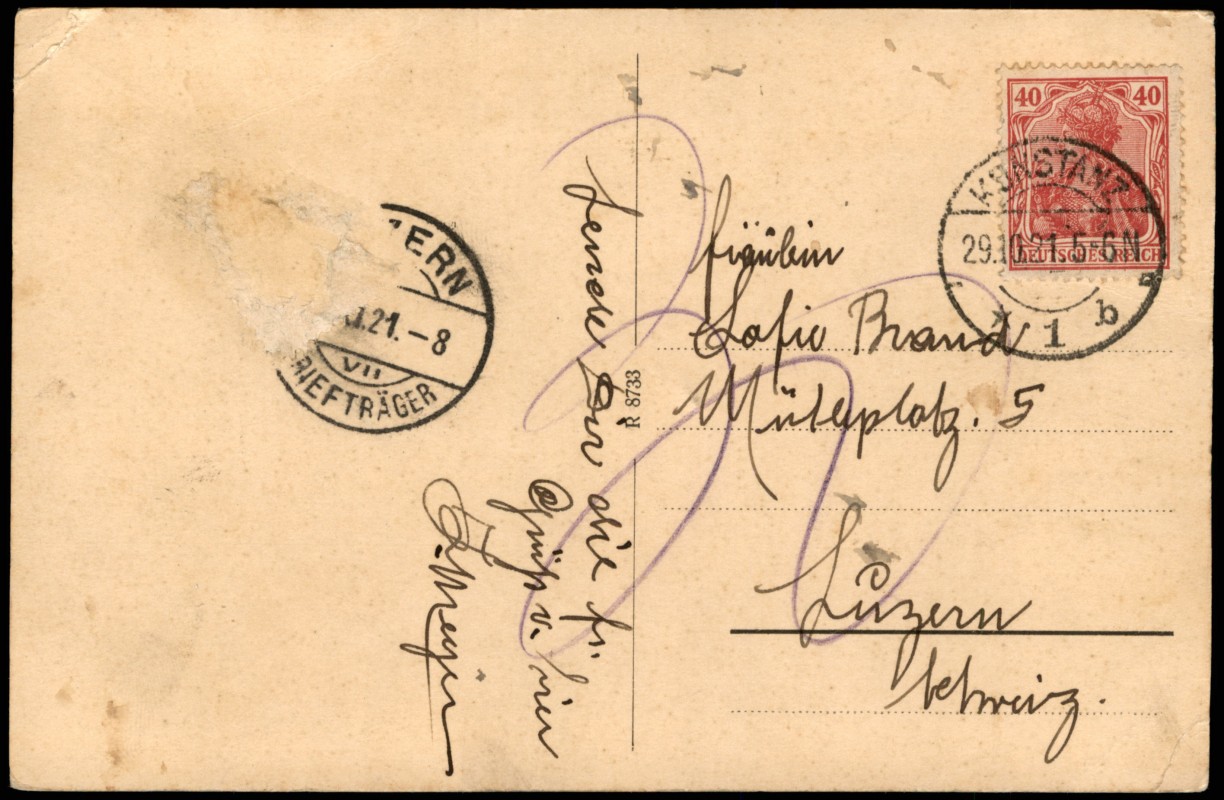 40 40
DEUTSCHES REICH
KONSTANZ
29.10.21.5-6N
* 1 b
ZERN
.21.-8
VII
RIEFTRÄGER
Sende Dir die fr.
Grüße v. hier
R 8733
Fräulein
Sofie Brand
5
Luzern
Schweiz.